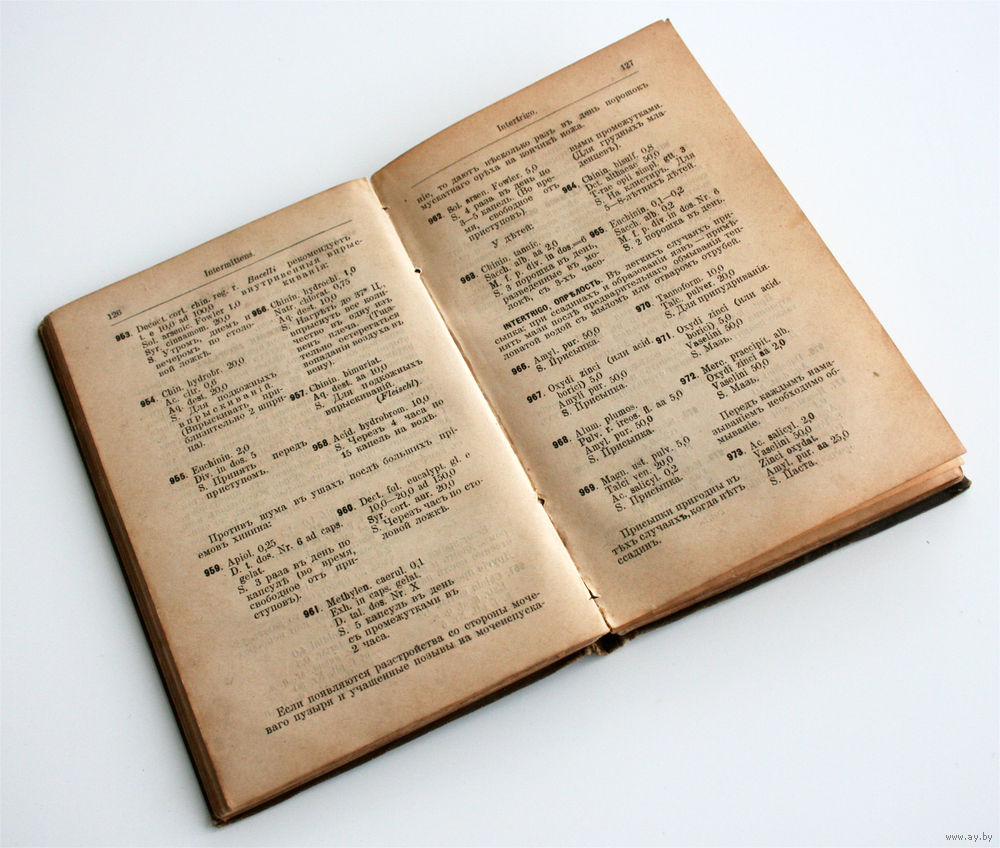 126
Intermittens.
953. Decoct. cort. chin. reg. r.
t. e 10,0 : 100,0
Sol. arsenic. Fowler 1,0
Syr. cinnamom. 20,0
S. Утромъ, днемъ и
вечеромъ по столо-
вой ложкѣ.
954. Chin. hydrobr. 20,0
Ac. citr. 0,6
Aq. dest. 20,0
S. Для подкожныхъ
впрыскиваній.
(Впрыскивать при-
близительно 2 шпри-
ца).
955. Euchinin. 2,0
Div. in dos. 5
S. Принять передъ
приступомъ.
Bacelli рекомендуетъ
внутривенныя впрыс-
киванія:
956. Chinin hydrochl. 1,0
Natr. chlorat. 0,75
Aq. dest. 10,0
S. Нагрѣть до 37° Ц.
впрыснуть все коли-
чество въ одну изъ
венъ плеча. (Тща-
тельно остерегаться
попаданія воздуха въ
вену).
957. Chinin. bimuriat.
Aq. dest. aa 10,0
S. Для подкожныхъ
впрыскиваній.
(Fleischl).
958. Acid. hydrobrom. 10,0
S. Черезъ 4 часа по
15 капель на водѣ.
Противъ шума въ ушахъ послѣ большихъ прі-
емовъ хинина:
959. Apiol. 0,25
D. t. dos. Nr. 6 ad caps.
gelat.
S. 3 раза въ день по
капсулѣ (во время,
свободное отъ при-
ступовъ).
960. Dect. fol. eucalypt. gl. e
10,0—20,0 ad 150,0
Syr. cort. aur. 20,0
S. Черезъ часъ по сто-
ловой ложкѣ.
961. Methylen. caerul. 0,1
Exh. in caps. gelat.
D. tal. dos. Nr. X
S. 5 капсуль въ день
съ промежутками въ
2 часа.
Если появляются разстройства со стороны моче-
ваго пузыря и учащенные позывы на мочеиспуска-
Intertrigo.
127
ніе, то даютъ нѣсколько разъ въ день порошокъ
мускатнаго орѣха на кончикѣ ножа.
962. Sol. arsen. Fowler. 5,0
S. 4 раза въ день по
3—5 капель. (Во вре-
мя, свободное отъ
приступовъ).
У дѣтей:
963. Chinin. tannic.
Sacch. alb. aa 2,0
M. f. p. div. in dos.=6
S. 3 порошка въ день,
разведенные въ мо-
локѣ, съ 3-хъ часо-
выми промежутками.
(Для грудныхъ мла-
денцевъ).
964. Chinin. bisulf. 0,8
Dct. althaeae 50,0
T-rae opii simpl. gtt. 3
S. На клистиръ. Для
5—8-лѣтнихъ дѣтей.
965. Euchinin. 0,1—0,2
Sacch. alb. 0,2
M. f. p. div. in dos. Nr. 6
S. 2 порошка въ день.
INTERTRIGO. ОПРѢЛОСТЬ. Въ легкихъ случаяхъ при-
сыпка; при ссадинахъ и образованіи язвъ — примѣ-
нять мази послѣ предварительнаго обмыванія теп-
ловатой водой съ мыломъ или отваромъ отрубей.
966. Amyl. pur. 50,0
S. Присыпка.
967. Oxydi zinci (или acid.
boric) 5,0
Amyli pur. 50,0
S. Присыпка.
968. Alum. plumos.
Pulv. r. ireos. fl. aa 5,0
Amyl. pur. 50,0
S. Присыпка.
969. Magn. ust. pulv. 5,0
Talci ven. 20,0
Ac. salicyl. 0,2
S. Присыпка.
Присыпки пригодны въ
тѣхъ случаяхъ, когда нѣтъ
ссадинъ.
970. Tannoform. 10,0
Talc. pulver. 20,0
S. Для припудриванія.
971. Oxydi zinci (или acid.
boric) 5,0
Vaselini 50,0
S. Мазь.
972. Merc. praecipit. alb.
Oxydi zinci aa 2,0
Vaselini 50,0
S. Мазь.
Передъ каждымъ нама-
зываніемъ необходимо об-
мываніе.
973. Ac. salicyl. 2,0
Vaselin. 50,0
Zinci oxydat.
Amyl. pur. aa 25,0
S. Паста.
www.ay.by